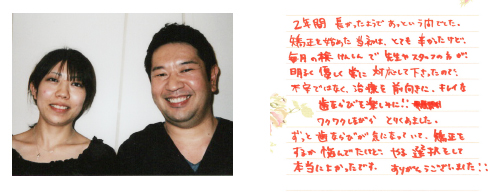 2年間 長かったようであっという間でした。
矯正を始めた当初は、とても辛かったけど、
毎月の検けんしんで先生やスタッフの方が
明るく優しく常に対応して下さったので、
不安ではなく、治療を前向きに、キレイな
歯ならびを楽しみに!!
ワクワクしながら とりくめました。
ずっと歯ならびが気になっていて、矯正を
するか悩んでたけど、やる選択をして
本当によかったです。ありがとうございました!!